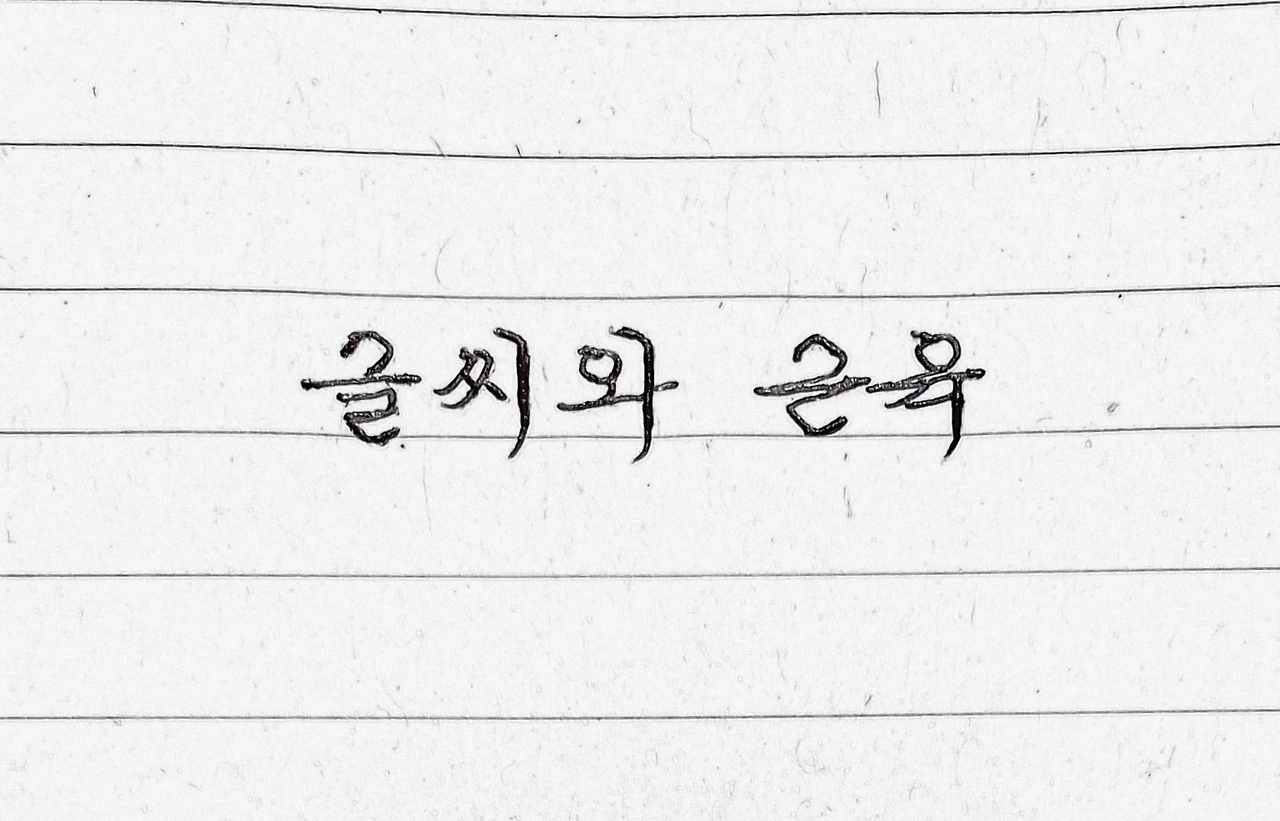 글씨와 근육